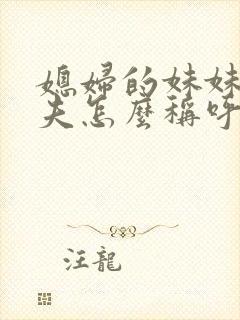 媳婦的妹妹
夫怎麼稱呼
汪龍